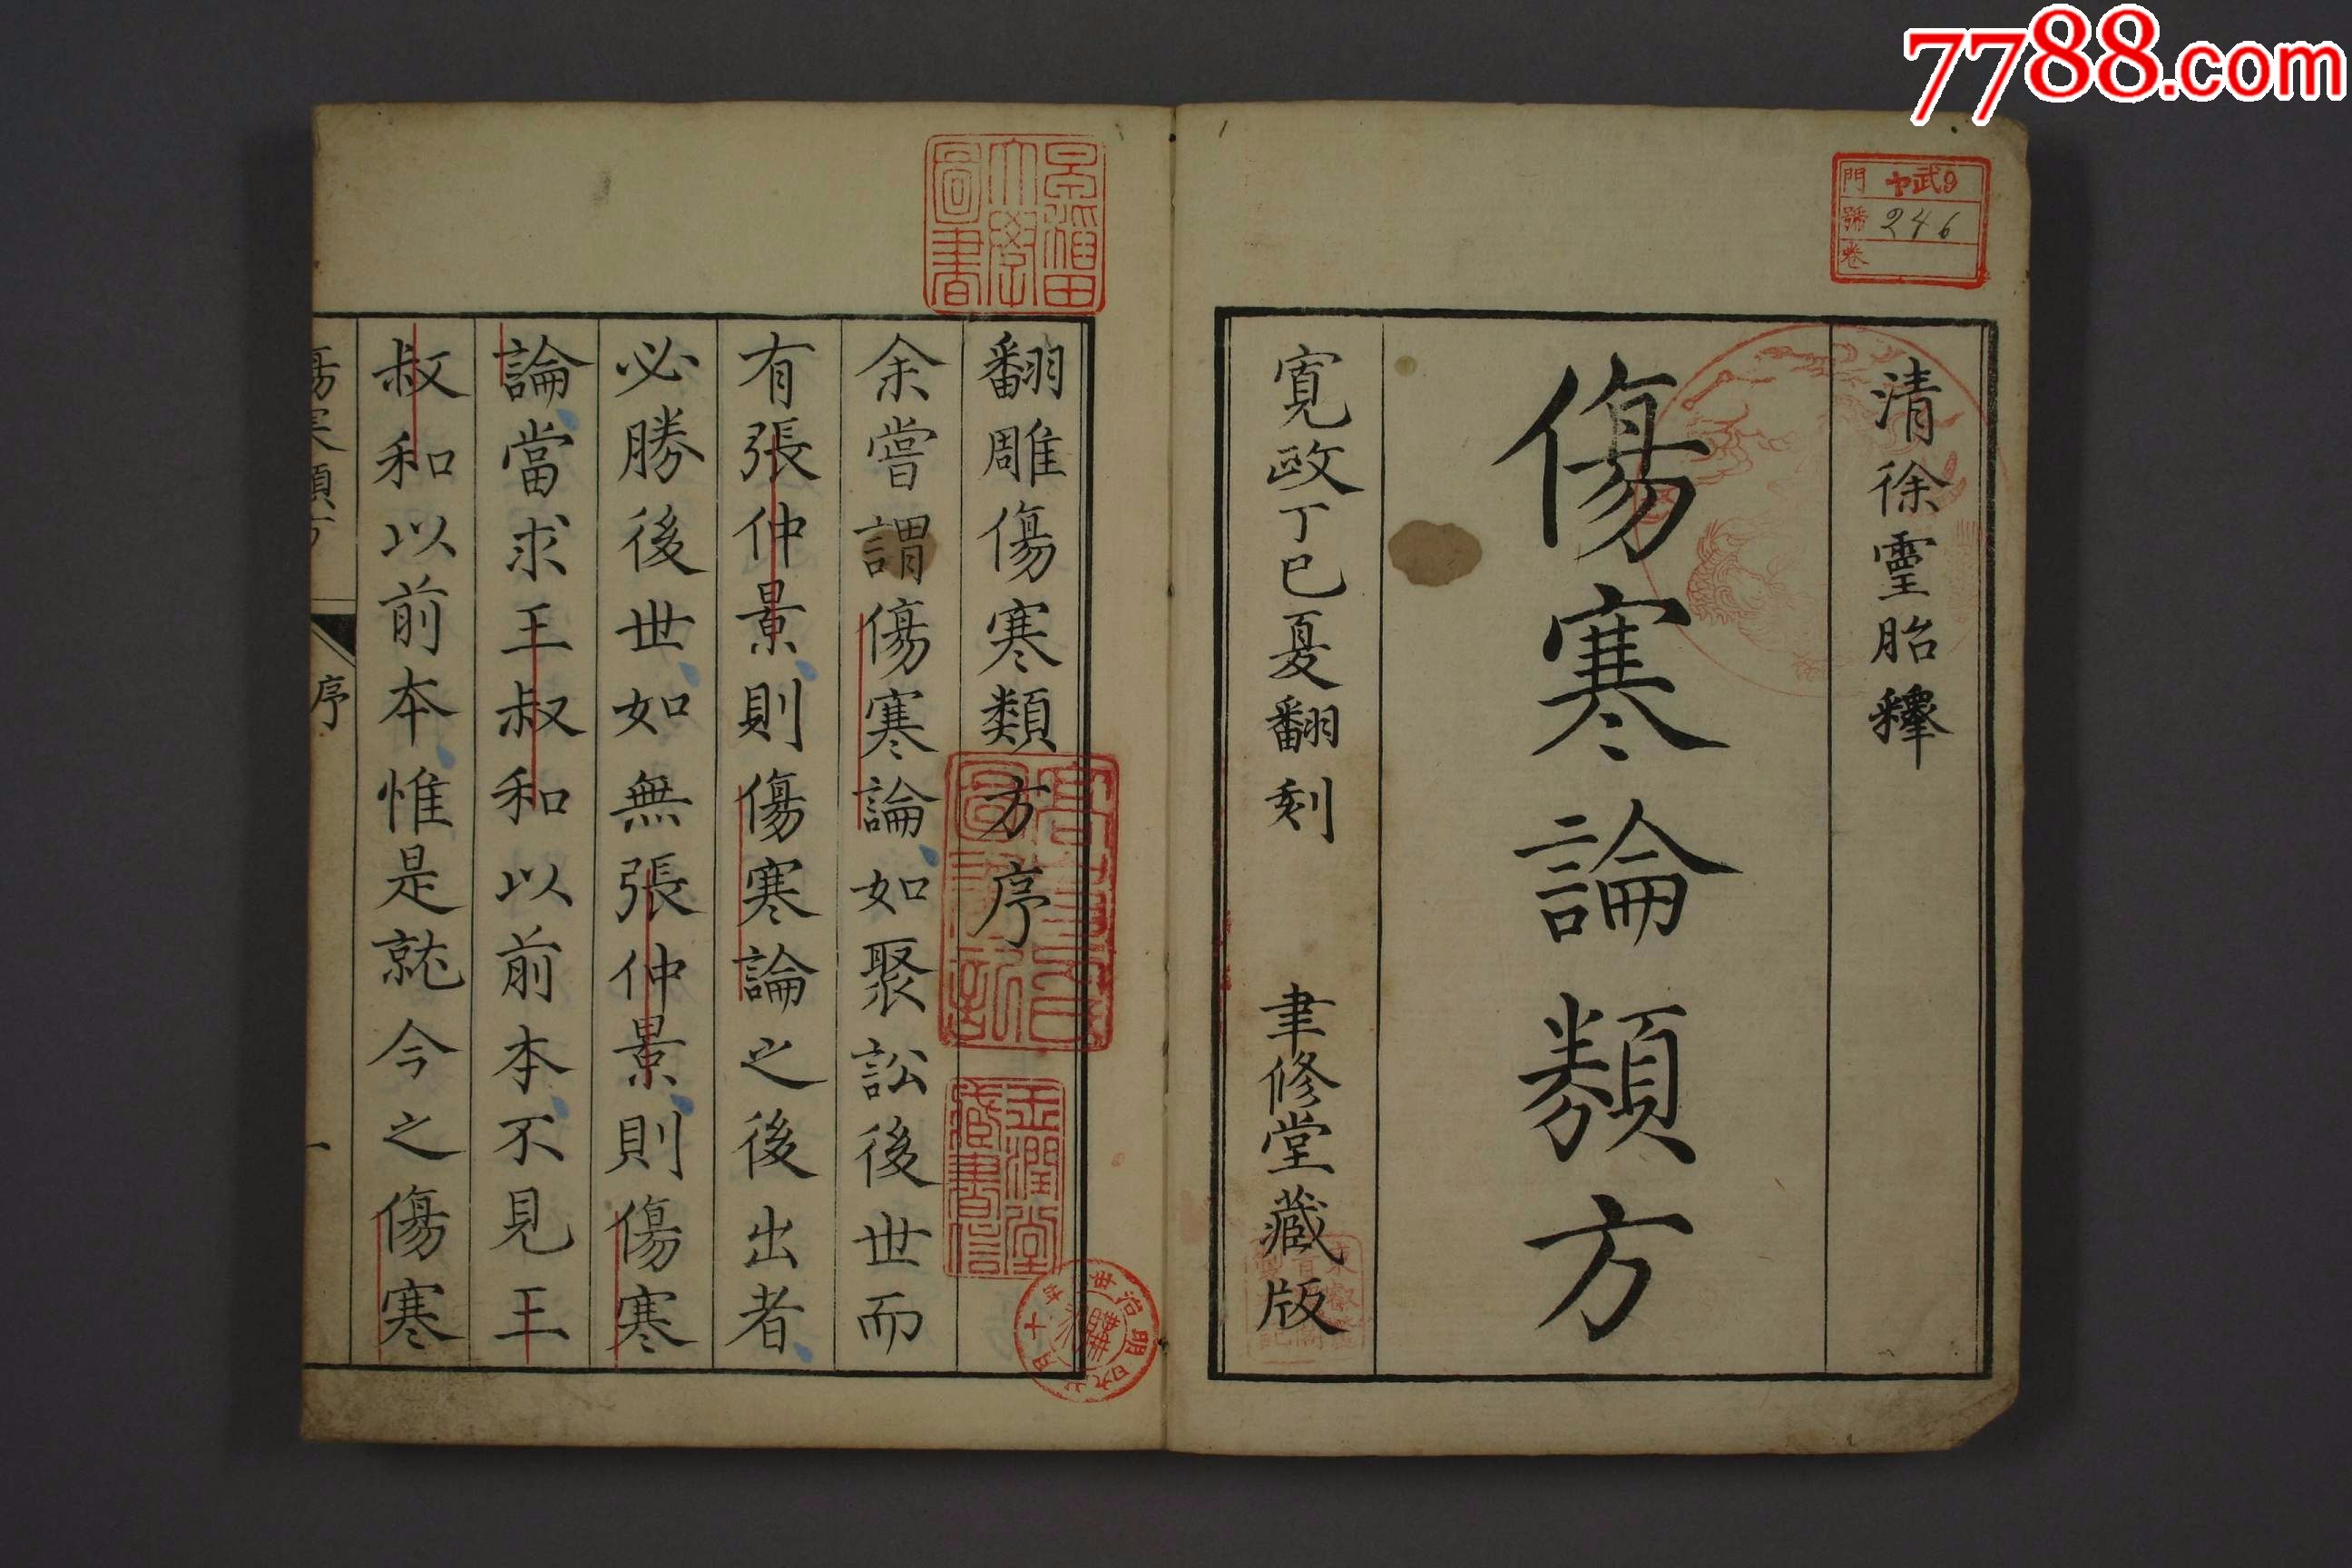 7788.com
門 ヤ武9
號 246
卷
清徐靈胎釋
傷寒論類方
寬政丁巳夏翻刻 聿修堂藏版
早稲田大學圖書
翻雕傷寒類方序
余嘗謂傷寒論如聚訟後世而
有張仲景則傷寒論之後出者
必勝後世如無張仲景則傷寒
論當求王叔和以前本不見王
叔和以前本惟是就今之傷寒
傷寒類方 序 一